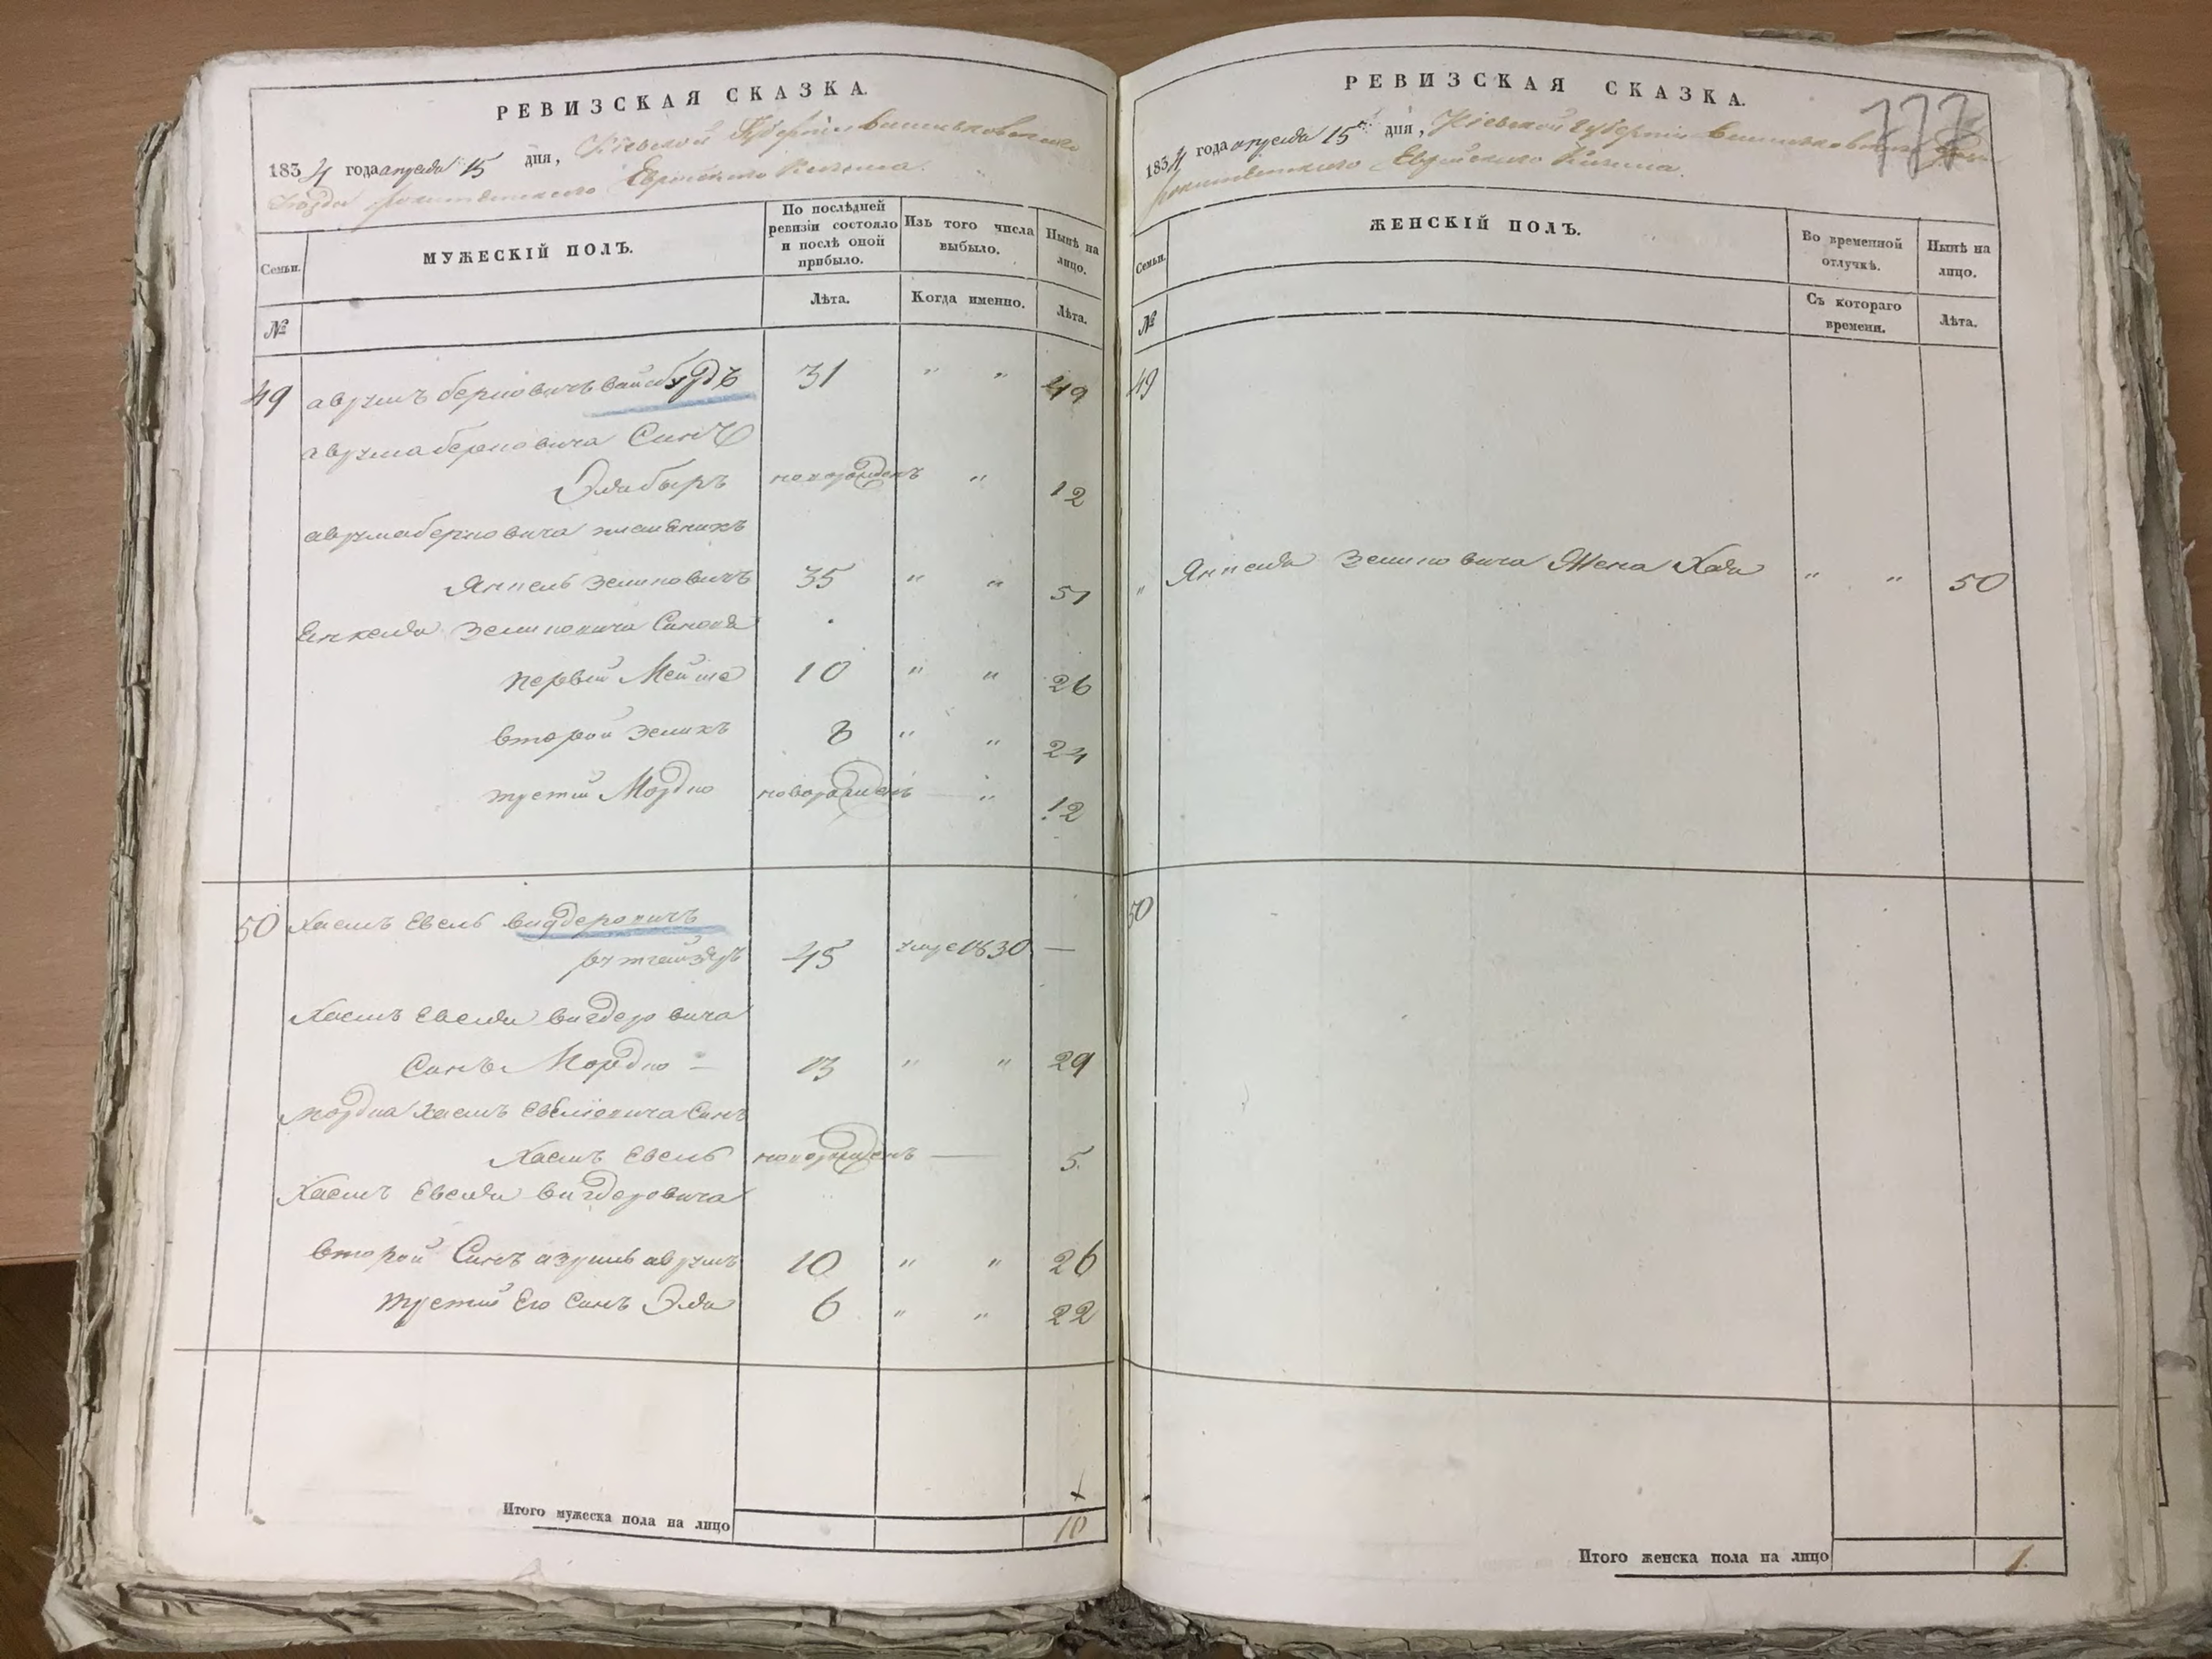 РЕВИЗСКАЯ СКАЗКА.
1834 года апреля 15 дня, Кіевской Губерніи Васильковскаго
Уезда рокитянского Еврейского Кагала.
Семьи.
МУЖЕСКІЙ ПОЛЪ.
По послѣдней ревизіи состояло и послѣ оной прибыло.
Изъ того числа выбыло.
Нынѣ на лицо.
№
Лѣта.
Когда именно.
Лѣта.
49 аврумъ берковичъ вайсбурдъ 31 " " 49
аврумаберковича Синъ
Элаберъ новорожденъ " 12
аврумаберковича племеникъ
Янкель Зеликовичъ 35 " " 51
Енкеля Зеликовича Синовя
первій Мейше 10 " " 26
второй Зеликъ 8 " " 24
третій Мордко новорожденъ " 12
50 Хаимъ Евель вигдеровичъ
45 умре 1830 —
Хаимъ Евеля вигдеровича
Синъ Мордко — 13 " " 29
мордка Хаимъ Евеліовича Синъ
Хаимъ Евель новорожденъ — 5.
Хаимъ Евеля вигдеровича
второй Синъ азриль аврумъ 10 " " 26
третій Его синъ Эля 6 " " 22
Итого мужеска пола на лицо 10
РЕВИЗСКАЯ СКАЗКА.
1834 года апреля 15 дня, Кіевской губерніи Васильковскаго
рокитянского Еврейского Кагала.
Семьи.
ЖЕНСКІЙ ПОЛЪ.
Во временной отлучкѣ.
Нынѣ на лицо.
№
Съ котораго времени.
Лѣта.
49
" Янкеля Зеликовича Жена Хая " " 50
50
Итого женска пола на лицо 1.